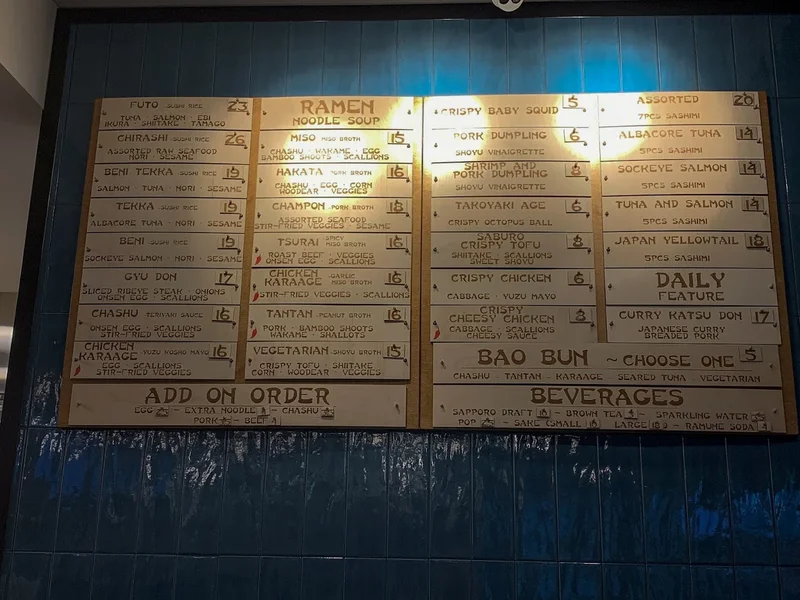 FUTO SUSHI RICE 23
TUNA · SALMON · EBI
IKURA · SHIITAKE · TAMAGO
CHIRASHI SUSHI RICE 26
ASSORTED RAW SEAFOOD
NORI · SESAME
BENI TEKKA SUSHI RICE 19
SALMON · TUNA · NORI · SESAME
TEKKA SUSHI RICE 19
ALBACORE TUNA · NORI · SESAME
BENI SUSHI RICE 19
SOCKEYE SALMON · NORI · SESAME
GYU DON 17
SLICED RIBEYE STEAK · ONIONS
ONSEN EGG · SCALLIONS
CHASHU TERIYAKI SAUCE 16
ONSEN EGG · SCALLIONS
STIR-FRIED VEGGIES
CHICKEN
KARAAGE YUZU KOSHO MAYO 16
EGG · SCALLIONS
STIR-FRIED VEGGIES
RAMEN
NOODLE SOUP
MISO MISO BROTH 15
CHASHU · WAKAME · EGG
BAMBOO SHOOTS · SCALLIONS
HAKATA PORK BROTH 16
CHASHU · EGG · CORN
WOODEAR · VEGGIES
CHAMPON PORK BROTH 18
ASSORTED SEAFOOD
STIR-FRIED VEGGIES · SESAME
TSURAI SPICY MISO BROTH 16
ROAST BEEF · VEGGIES
ONSEN EGG · SCALLIONS
CHICKEN GARLIC
KARAAGE MISO BROTH 16
STIR-FRIED VEGGIES · SCALLIONS
TANTAN PEANUT BROTH 16
PORK · BAMBOO SHOOTS
WAKAME · SHALLOTS
VEGETARIAN SHOYU BROTH 15
CRISPY TOFU · SHIITAKE
CORN · WOODEAR · VEGGIES
ADD ON ORDER
EGG - EXTRA NOODLE - CHASHU
PORK - BEEF
CRISPY BABY SQUID 5
PORK DUMPLING 6
SHOYU VINAIGRETTE
SHRIMP AND
PORK DUMPLING 8
SHOYU VINAIGRETTE
TAKOYAKI AGE 6
CRISPY OCTOPUS BALL
SABURO
CRISPY TOFU 8
SHIITAKE · SCALLIONS
SWEET SHOYU
CRISPY CHICKEN 6
CABBAGE · YUZU MAYO
CRISPY
CHEESY CHICKEN 8
CABBAGE · SCALLIONS
CHEESY SAUCE
ASSORTED 20
7PCS SASHIMI
ALBACORE TUNA 14
5PCS SASHIMI
SOCKEYE SALMON 14
5PCS SASHIMI
TUNA AND SALMON 14
5PCS SASHIMI
JAPAN YELLOWTAIL 18
5PCS SASHIMI
DAILY
FEATURE
CURRY KATSU DON 17
JAPANESE CURRY
BREADED PORK
BAO BUN ~ CHOOSE ONE 5
CHASHU · TANTAN · KARAAGE · SEARED TUNA · VEGETARIAN
BEVERAGES
SAPPORO DRAFT - BROWN TEA - SPARKLING WATER
POP - SAKE (SMALL LARGE - RAMUNE SODA